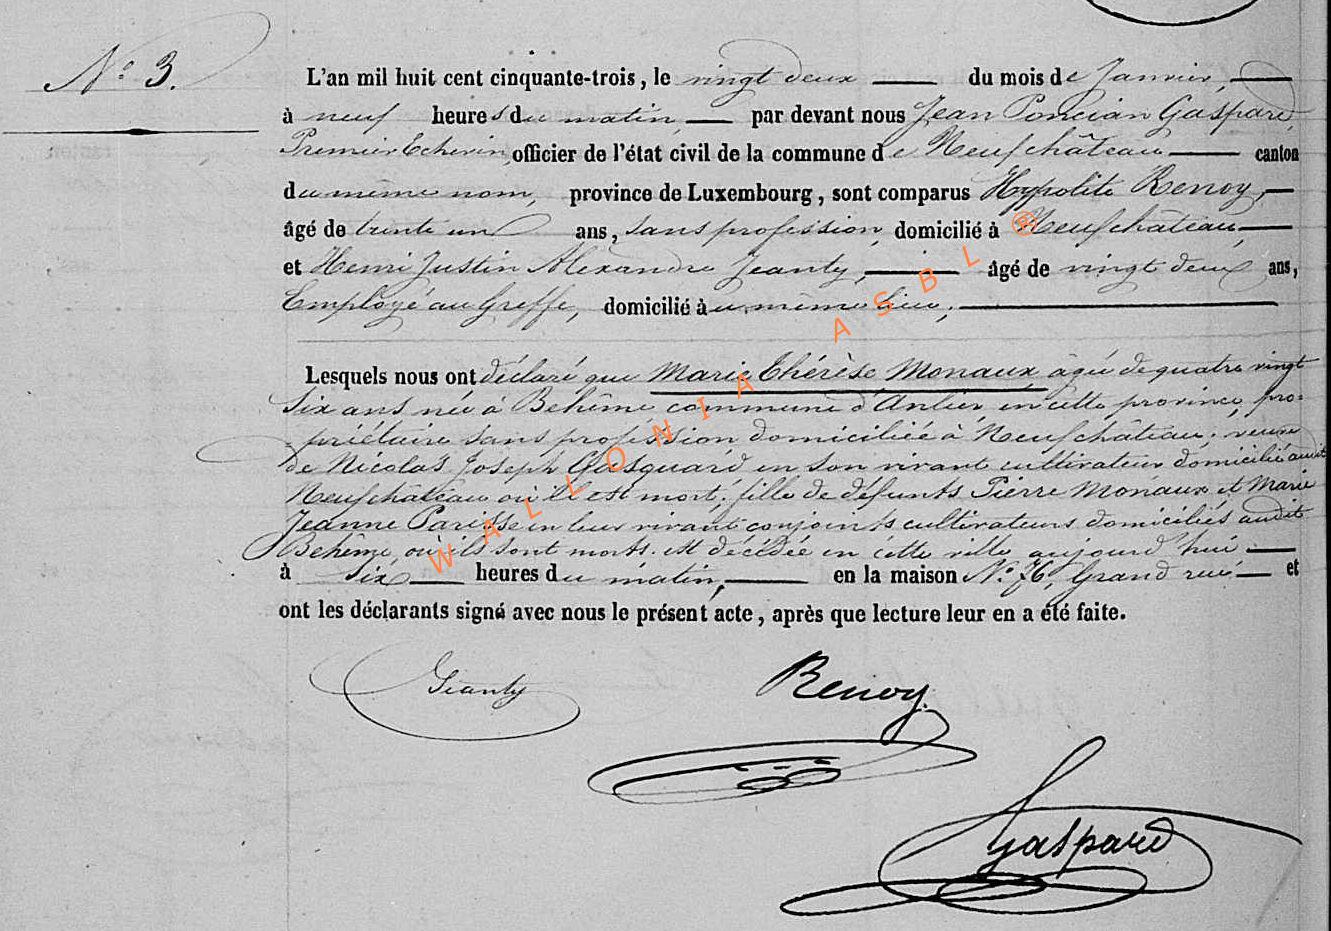 N° 3.
L'an mil huit cent cinquante-trois, le vingt deux du mois de Janvier,
à neuf heures du matin, par devant nous Jean Poncian Gaspard,
Premier Echevin officier de l'état civil de la commune de Neufchâteau canton
du même nom, province de Luxembourg, sont comparus Hypolite Renoy,
âgé de trente un ans, sans profession, domicilié à Neufchâteau,
et Henri Justin Alexandre Jeanty, âgé de vingt deux ans,
Employé au Greffe, domicilié au même lieu,
Lesquels nous ont déclaré que Marie Thérèse Monaux âgée de quatre vingt
six ans née à Behême commune d'Anlier, en cette province, pro-
priétaire sans profession domiciliée à Neufchâteau, veuve
de Nicolas Joseph Gasquard en son vivant cultivateur domicilié audit
Neufchâteau où il est mort; fille de défunts Pierre Monaux et Marie
Jeanne Parisse en leur vivant conjoints cultivateurs domiciliés audit
Behême, où ils sont morts. est décédée en cette ville aujourd'hui
à six heures du matin, en la maison N° 76, Grand rue et
ont les déclarants signé avec nous le présent acte, après que lecture leur en a été faite.
Jeanty Renoy
Gaspard
WALLONIA ASBL ®